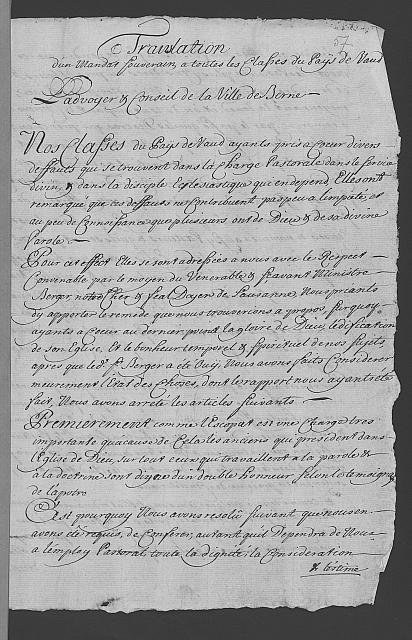 57
Translation
d'un Mandat Souverain, a toutes les Classes du Païs de Vaud
L'advoyer & Conseil de la Ville de Berne –
Nos Classes du Païs de Vaud ayants pris a Coeur divers
deffauts qui se trouvent dans la Charge Pastorale dans le Service
divin, & dans la discipl. Eclesiastique qui en depend, Elles ont
remarqué que ces deffauts ne Contribuent pas peu a l'impieté, et
au peu de Connoissance que plusieurs ont de Dieu & de sa divine
Parole –
Pour cet effect Elles se sont adressées a nous avec le Respect
Convenable par le moyen du Venerable & Scavant Ministre
Berger notre Cher & feal Doyen de Lausanne, Nous priants
d'y apporter le remede que nous trouverions a propos, sur quoy
ayants a Coeur au dernier point la gloire de Dieu, ledification
de son Eglise, Et le bonheur temporel & spirituel de nos sujets,
apres que led. Sr. Berger a eté Ouÿ, Nous avons faits Considerer
meurement l'Etat des Choses, dont le rapport nous ayant eté
fait, Nous avons arreté les articles suivants –
Premierement comme l'Escopat est une Charge tres
importante qu'a cause de Cela les anciens qui president dans
l'Eglise de Dieu, sur tout ceux qui travaillent a la parole &
a la doctrine sont dignes d'un double honneur, selon le temoignage
de l'apotre
C'est pourquoy Nous avons resolu suivant que nous en
avons eté requis, de Conferer, autant qu'il Dependra de Nous
a l'employ Pastoral, toute la dignité, la Consideration
& l'estime